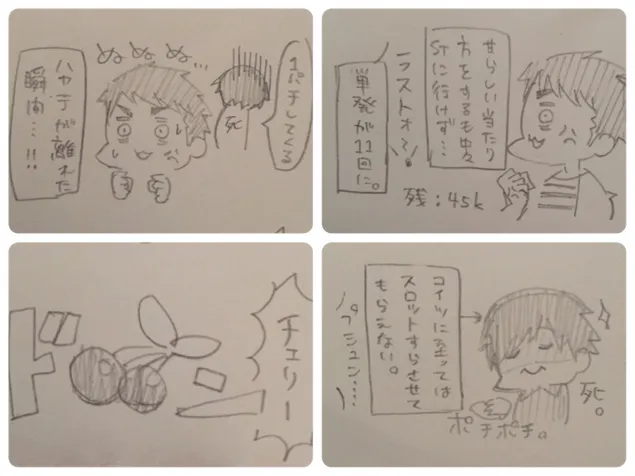 1パチしてくる
死
ぬぬぬ…
ハヤテが離れた
瞬間…!!
甘らしい当たり
方をするも中々
STに行けず…
ラストォ〜!
単発が11回に。
残:45k
チェリー
ドン
コイツに至っては
スロットすらさせて
もらえない。
死。
ポチポチ。